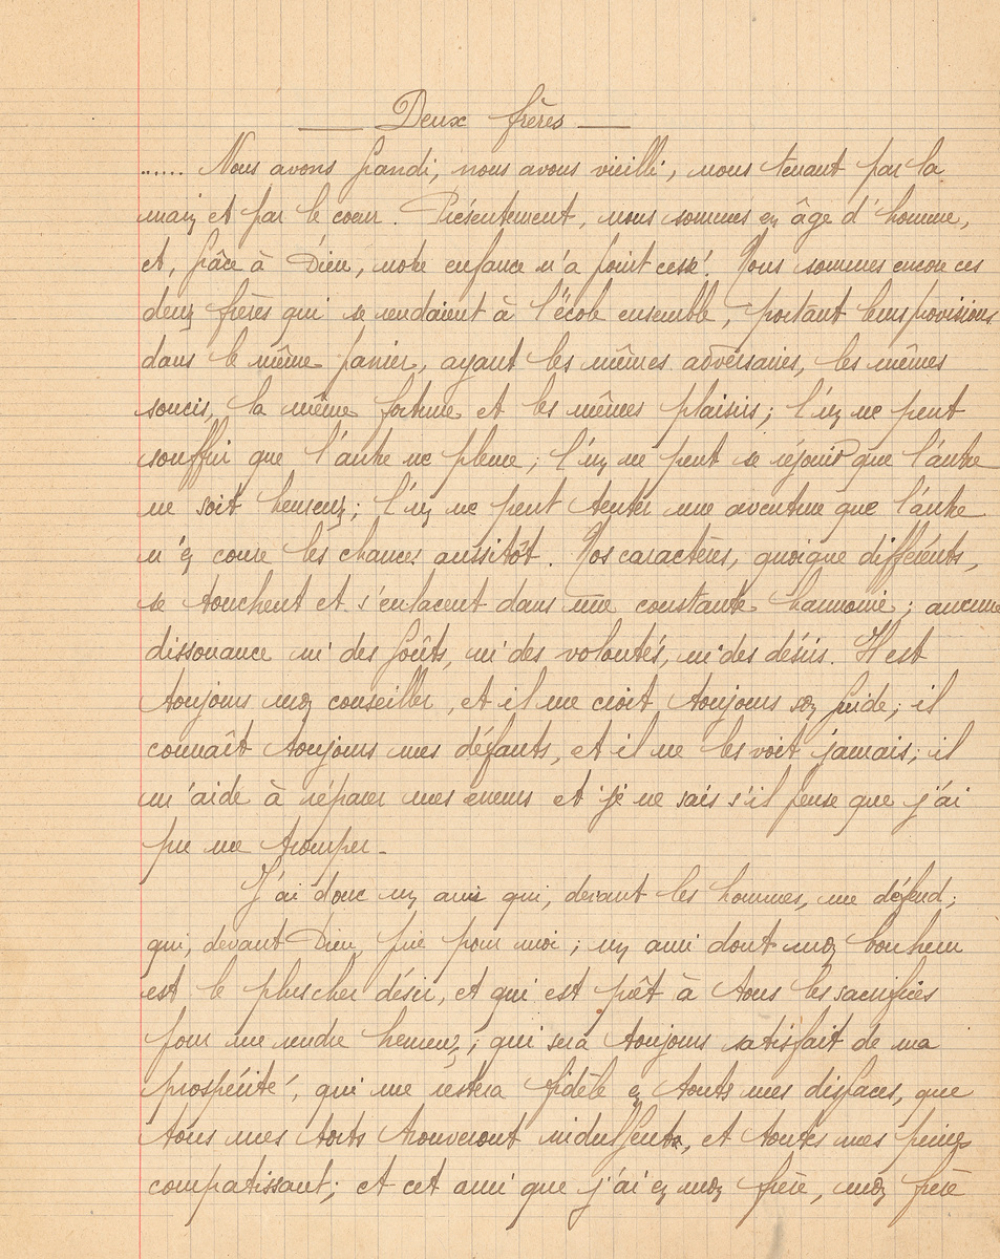 Deux frères
...... Nous avons grandi, nous avons vieilli, nous tenant par la
main et par le coeur. Présentement, nous sommes en âge d'homme,
et, grâce à Dieu, notre enfance n'a point cessé. Nous sommes encore ces
deux frères qui se rendaient à l'école ensemble, portant leurs provisions
dans le même panier, ayant les mêmes adversaires, les mêmes
soucis, la même fortune et les mêmes plaisirs; l'un ne peut
souffrir que l'autre ne pleure; l'un ne peut se réjouir que l'autre
ne soit heureux; l'un ne peut tenter une aventure que l'autre
n'en coure les chances aussitôt. Nos caractères, quoique différents,
se touchent et s'enlacent dans une constante harmonie; aucune
dissonance ni des goûts, ni des volontés, ni des désirs. Il est
toujours mon conseiller, et il me croit toujours son guide; il
connaît toujours mes défauts, et il ne les voit jamais; il
m'aide à réparer mes erreurs et je ne sais s'il pense que j'ai
pu me tromper.
J'ai donc un ami qui, devant les hommes, me défend;
qui, devant Dieu, prie pour moi; un ami dont mon bonheur
est le plus cher désir, et qui est prêt à tous les sacrifices
pour me rendre heureux; qui sera toujours satisfait de ma
prospérité, qui me restera fidèle en toutes mes disgraces, que
tous mes torts trouveront indulgent, et toutes mes peines
compatissant; et cet ami que j'ai en mon frère, mon frère